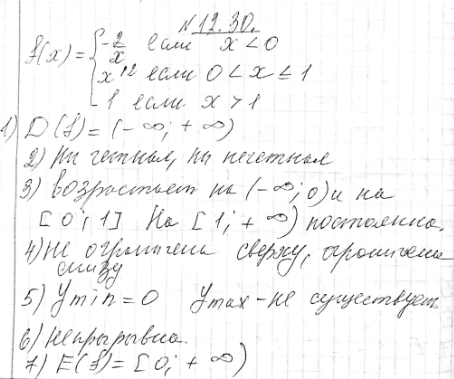 № 12.30.
f(x) = { -2/x если x < 0
x¹² если 0 < x ≤ 1
1 если x > 1
1) D(f) = (-∞; +∞)
2) Ни четная, ни нечетная
3) возрастает на (-∞; 0) и на
[0; 1] На [1; +∞) постоянна.
4) не ограничена сверху, ограничена
снизу
5) Ymin = 0 Ymax - не существует
6) Непрерывна.
7) E(f) = [0; +∞)